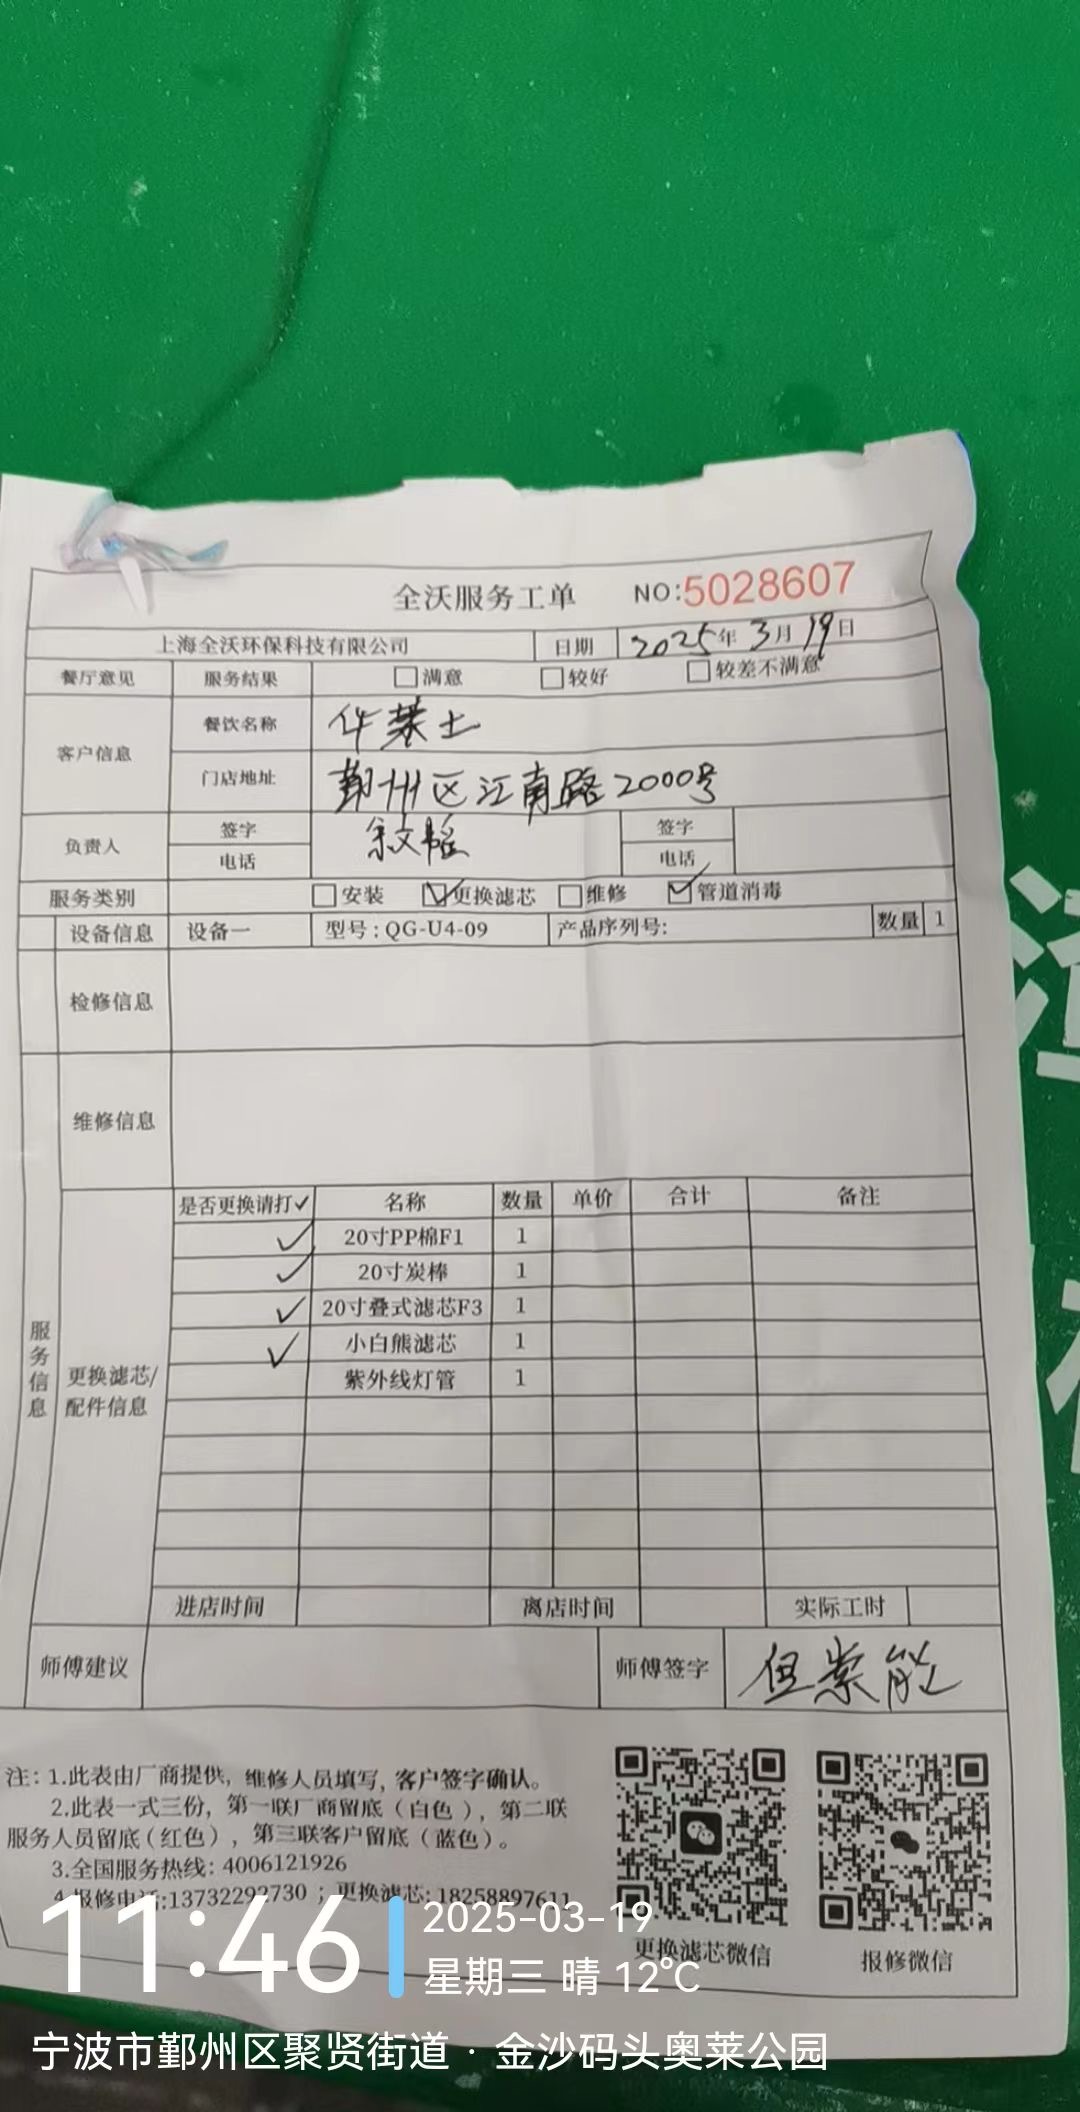 全沃服务工单 NO:5028607
上海全沃环保科技有限公司 日期 2025年3月19日
餐厅意见 服务结果 满意 较好 较差不满意
客户信息 餐饮名称 华莱士
门店地址 鄞州区江南路2000号
负责人 签字 余文韬 签字
电话 电话
服务类别 安装 更换滤芯 维修 管道消毒
设备信息 设备一 型号:QG-U4-09 产品序列号: 数量 1
检修信息
维修信息
服务信息
更换滤芯/配件信息
是否更换请打✓ 名称 数量 单价 合计 备注
✓ 20寸PP棉F1 1
✓ 20寸炭棒 1
✓ 20寸叠式滤芯F3 1
✓ 小白熊滤芯 1
紫外线灯管 1
进店时间 离店时间 实际工时
师傅建议 师傅签字 但崇能
注: 1.此表由厂商提供, 维修人员填写, 客户签字确认。
2.此表一式三份, 第一联厂商留底(白色), 第二联
服务人员留底(红色), 第三联客户留底(蓝色)。
3.全国服务热线: 4006121926
4.报修电话:13732292730 ; 更换滤芯: 18258897611
更换滤芯微信 报修微信
11:46
2025-03-19
星期三 晴 12℃
宁波市鄞州区聚贤街道·金沙码头奥莱公园